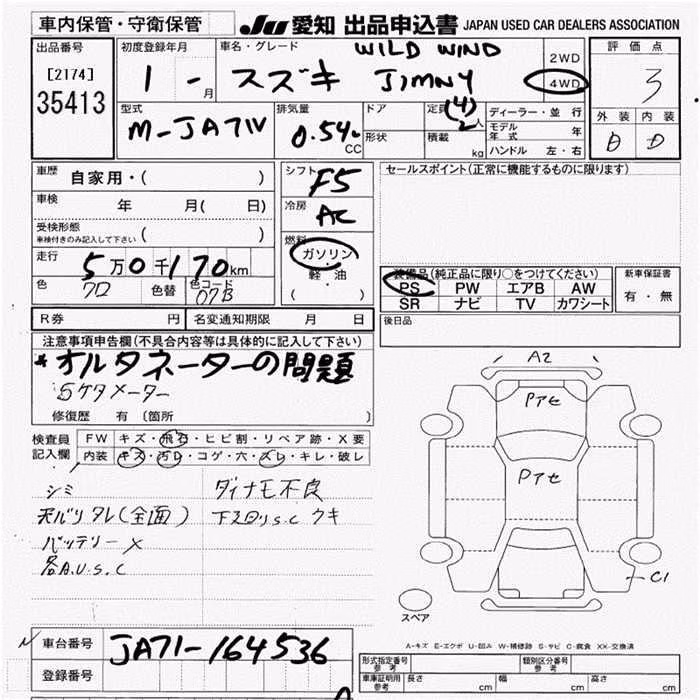 車内保管・守衛保管 JU 愛知 出品申込書 JAPAN USED CAR DEALERS ASSOCIATION
出品番号 [2174] 35413
初度登録年月 1 - 月
車名・グレード WILD WIND
スズキ JIMNY
2WD 4WD
評価点 3
外装 D 内装 D
型式 M-JA71V
排気量 0.54 CC
ドア 形状
定員 (4) 2 人
積載 kg
ディーラー・並行
モデル年式 年
ハンドル 左・右
車歴 自家用・( )
シフト F5
セールスポイント(正常に機能するものに限ります)
車検 年 月( 日)
冷房 AC
受検形態 車検付きのみ記入して下さい ( )
燃料 ガソリン・軽油 ( )
走行 5万0千170km
装備品(純正品に限り○をつけてください)
PS PW エアB AW
SR ナビ TV カワシート
新車保証書 有・無
色 クロ 色替 色コード 07B
後日品
R券 円 名変通知期限 月 日
注意事項申告欄(不具合内容等は具体的に記入して下さい)
*オルタネーターの問題
5ケタメーター
修復歴 有 〔箇所 〕
検査員記入欄
FW キズ・飛石・ヒビ割・リペア跡・X要
内装 キズ・汚レ・コゲ・穴・スレ・キレ・破レ
シミ ダイナモ不良
天バリタレ(全面) 下回りS.C ウキ
バッテリーX
各A.U.S.C
A2
Pアセ
Pアセ
C1
スペア
A-キズ E-エクボ U-凹み W-補修跡 S-サビ C-腐食 XX-交換済
車台番号 JA71-164536
登録番号
形式指定番号 参考 類別区分番号 参考
車庫証明用 参考 長さ cm 幅 cm 高さ cm